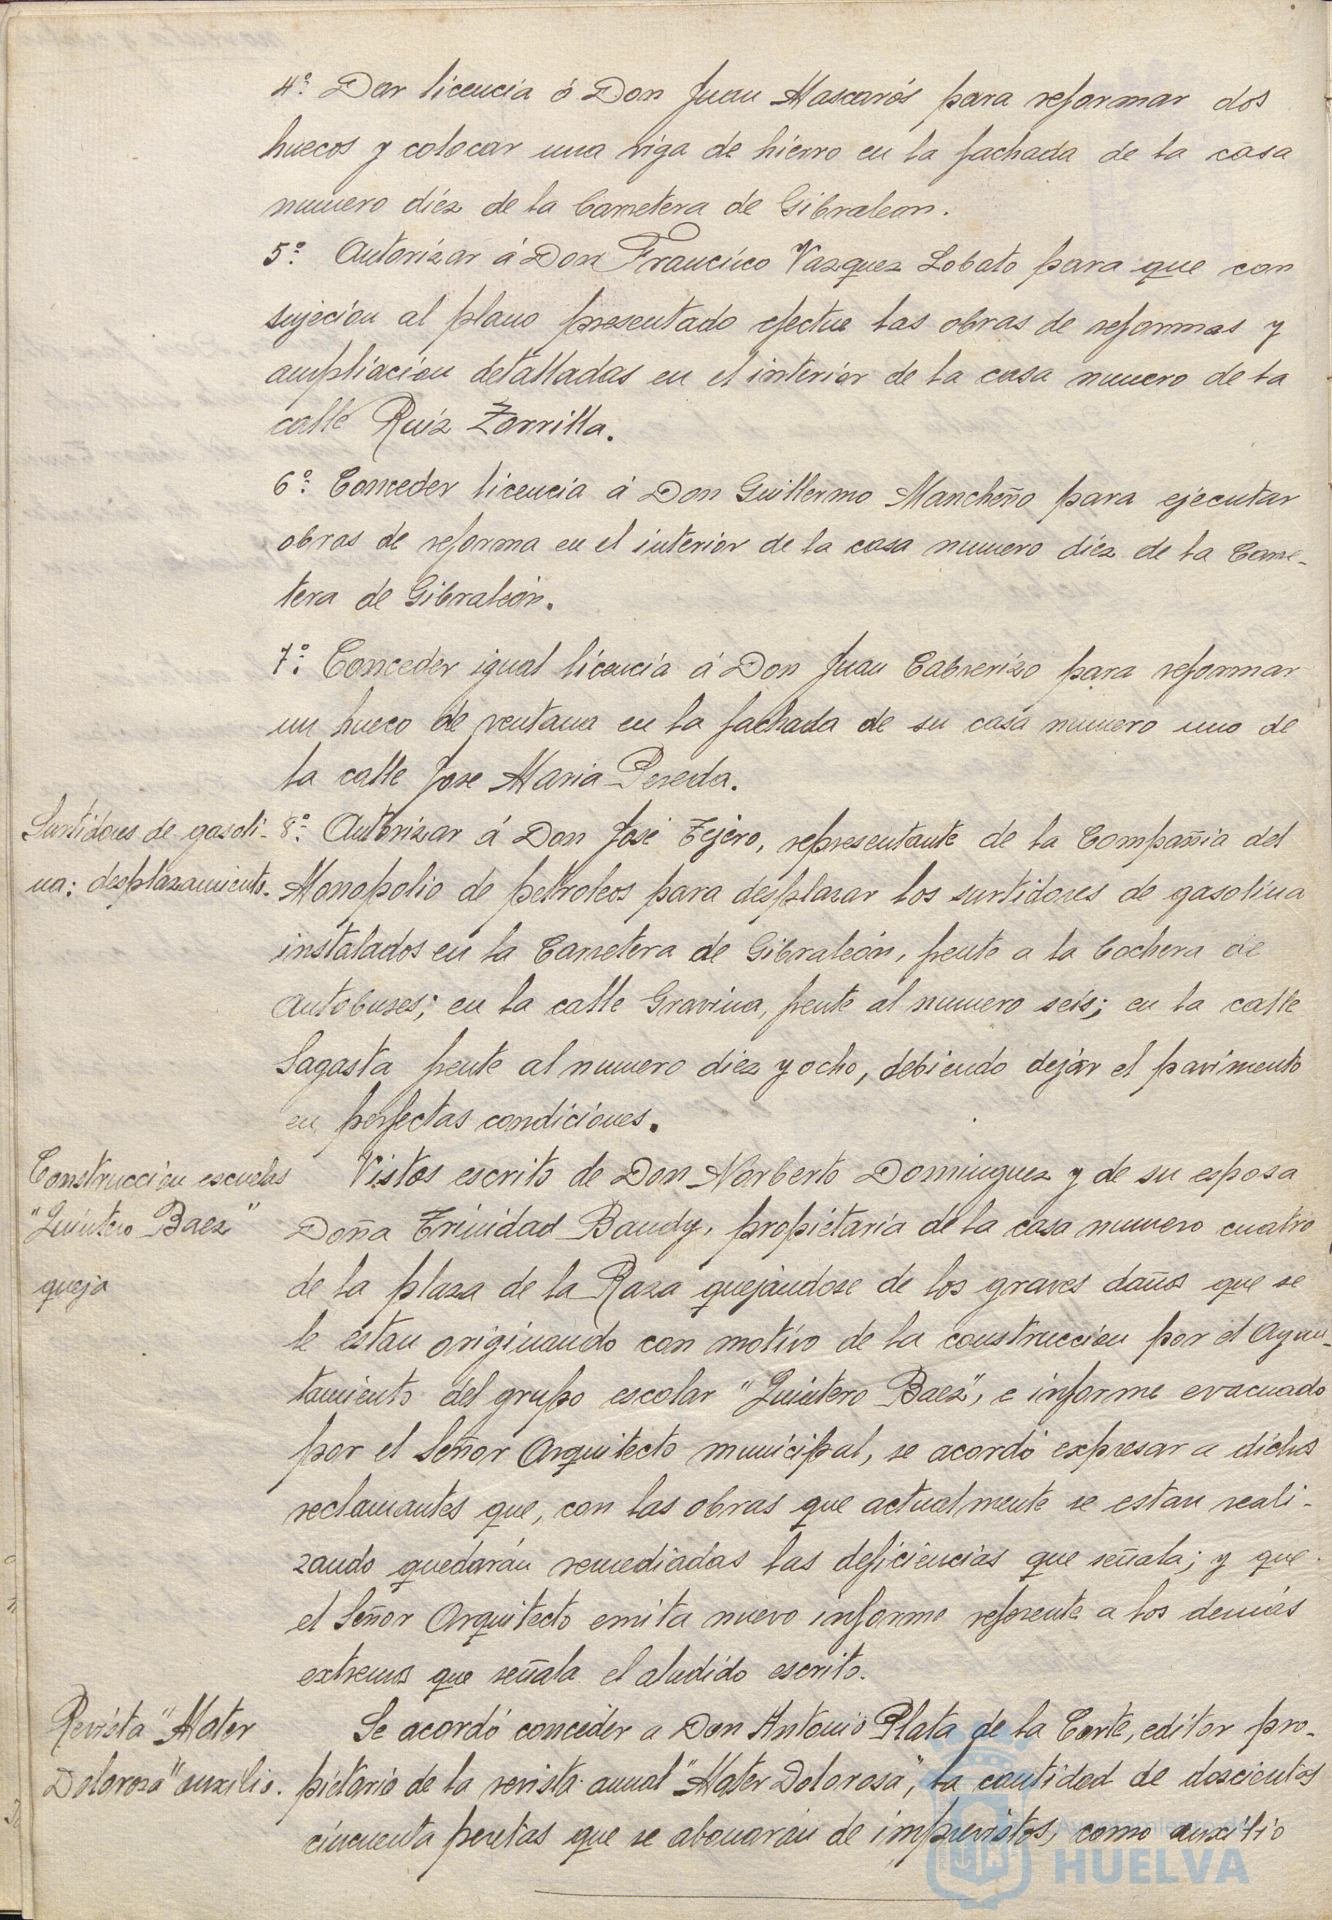 4º. Dar licencia á Don Juan Mascarós para reformar dos
huecos y colocar una viga de hierro en la fachada de la casa
numero diéz de la Carretera de Gibraleon.
5º. Autorizar á Don Francisco Vazquez Lobato para que con
sujeción al plano presentado efectue las obras de reformas y
ampliacion detalladas en el interior de la casa numero de la
calle Ruiz Zorrilla.
6º. Conceder licencia á Don Guillermo Mancheño para ejecutar
obras de reforma en el interior de la casa numero diéz de la Carre-
tera de Gibraleón.
7º. Conceder igual licencia á Don Juan Cabrerizo para reformar
un hueco de ventana en la fachada de su casa numero uno de
la calle Jose Maria Pereda.
Surtidores de gasoli-
na: desplazamiento.
8º. Autorizar á Don José Tejero, representante de la Compañia del
Monopolio de petroleos para desplazar los surtidores de gasolina
instalados en la Carretera de Gibraleón, frente a la Cochera de
Autobuses; en la calle Gravina, frente al numero seis; en la calle
Sagasta frente al numero diez y ocho, debiendo dejar el pavimento
en perfectas condiciones.
Construccion escuelas
"Quintero Baez"
queja
Vistos escrito de Don Norberto Dominguez y de su esposa
Doña Trinidad Baudy, propietaria de la casa numero cuatro
de la plaza de la Raza quejándose de los graves daños que se
le estan originando con motivo de la construccion por el Ayun-
tamiento del grupo escolar "Quintero Baez", e informe evacuado
por el Señor Arquitecto municipal, se acordó expresar a dichos
reclamantes que, con las obras que actualmente se estan reali-
zando quedarán remediadas las deficiencias que señala; y que
el Señor Arquitecto emita nuevo informe referente a los demás
extremos que señala el aludido escrito.
Revista "Mater
Dolorosa" auxilio.
Se acordó conceder a Don Antonio Plata de la Corte, editor pro-
pietario de la revista anual "Mater Dolorosa", la cantidad de doscientos
cincuenta pesetas que se abonarán de imprevistos, como auxilio
Ayuntamiento de
HUELVA